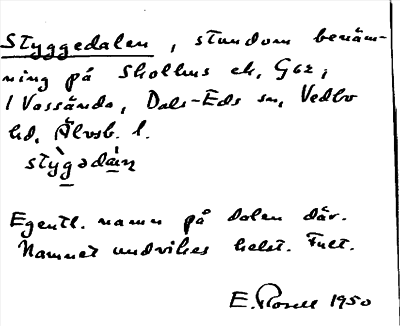 Styggedalen, stundom benäm-
ning på Skolhus ek, G62,
i Vassända, Dals-Eds sn, Vedbo
hd, Älvsb. l.
Egentl. namn på dalen där.
Namnet undvikes helst. Fult.
E. 1950